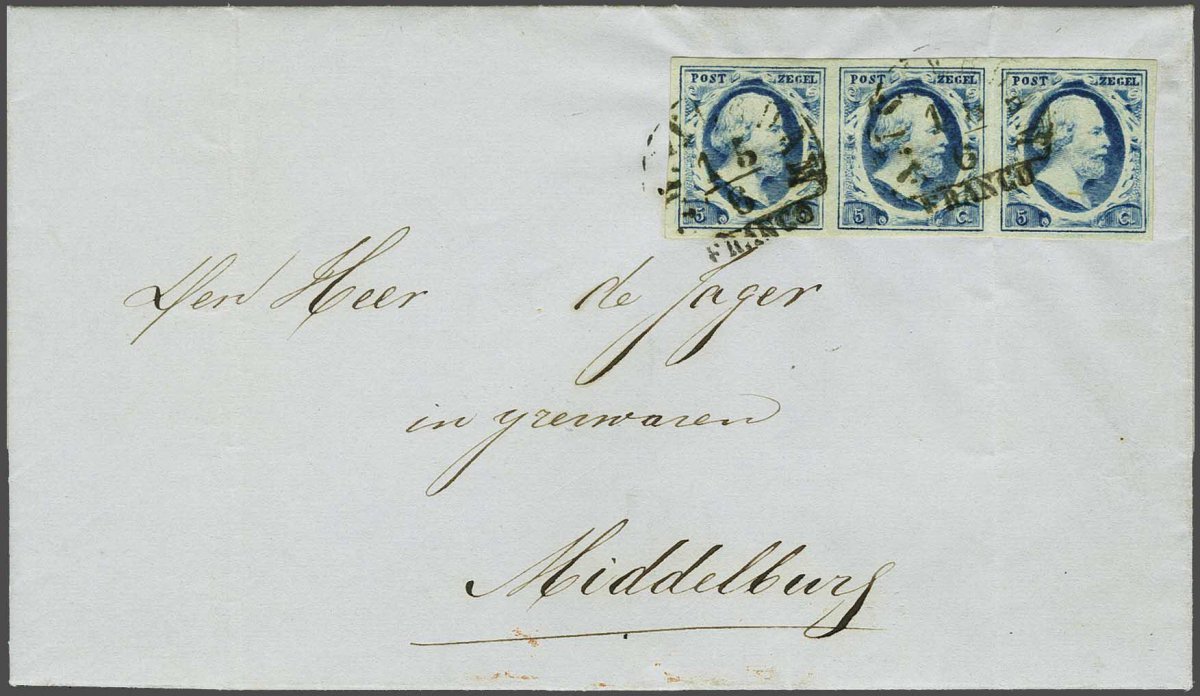 POST ZEGEL POST ZEGEL POST ZEGEL
5 5 C. 5 C.
15
6
FRANCO
1
6
FRANCO
Den Heer de Jager
in yzerwaren
Middelburg